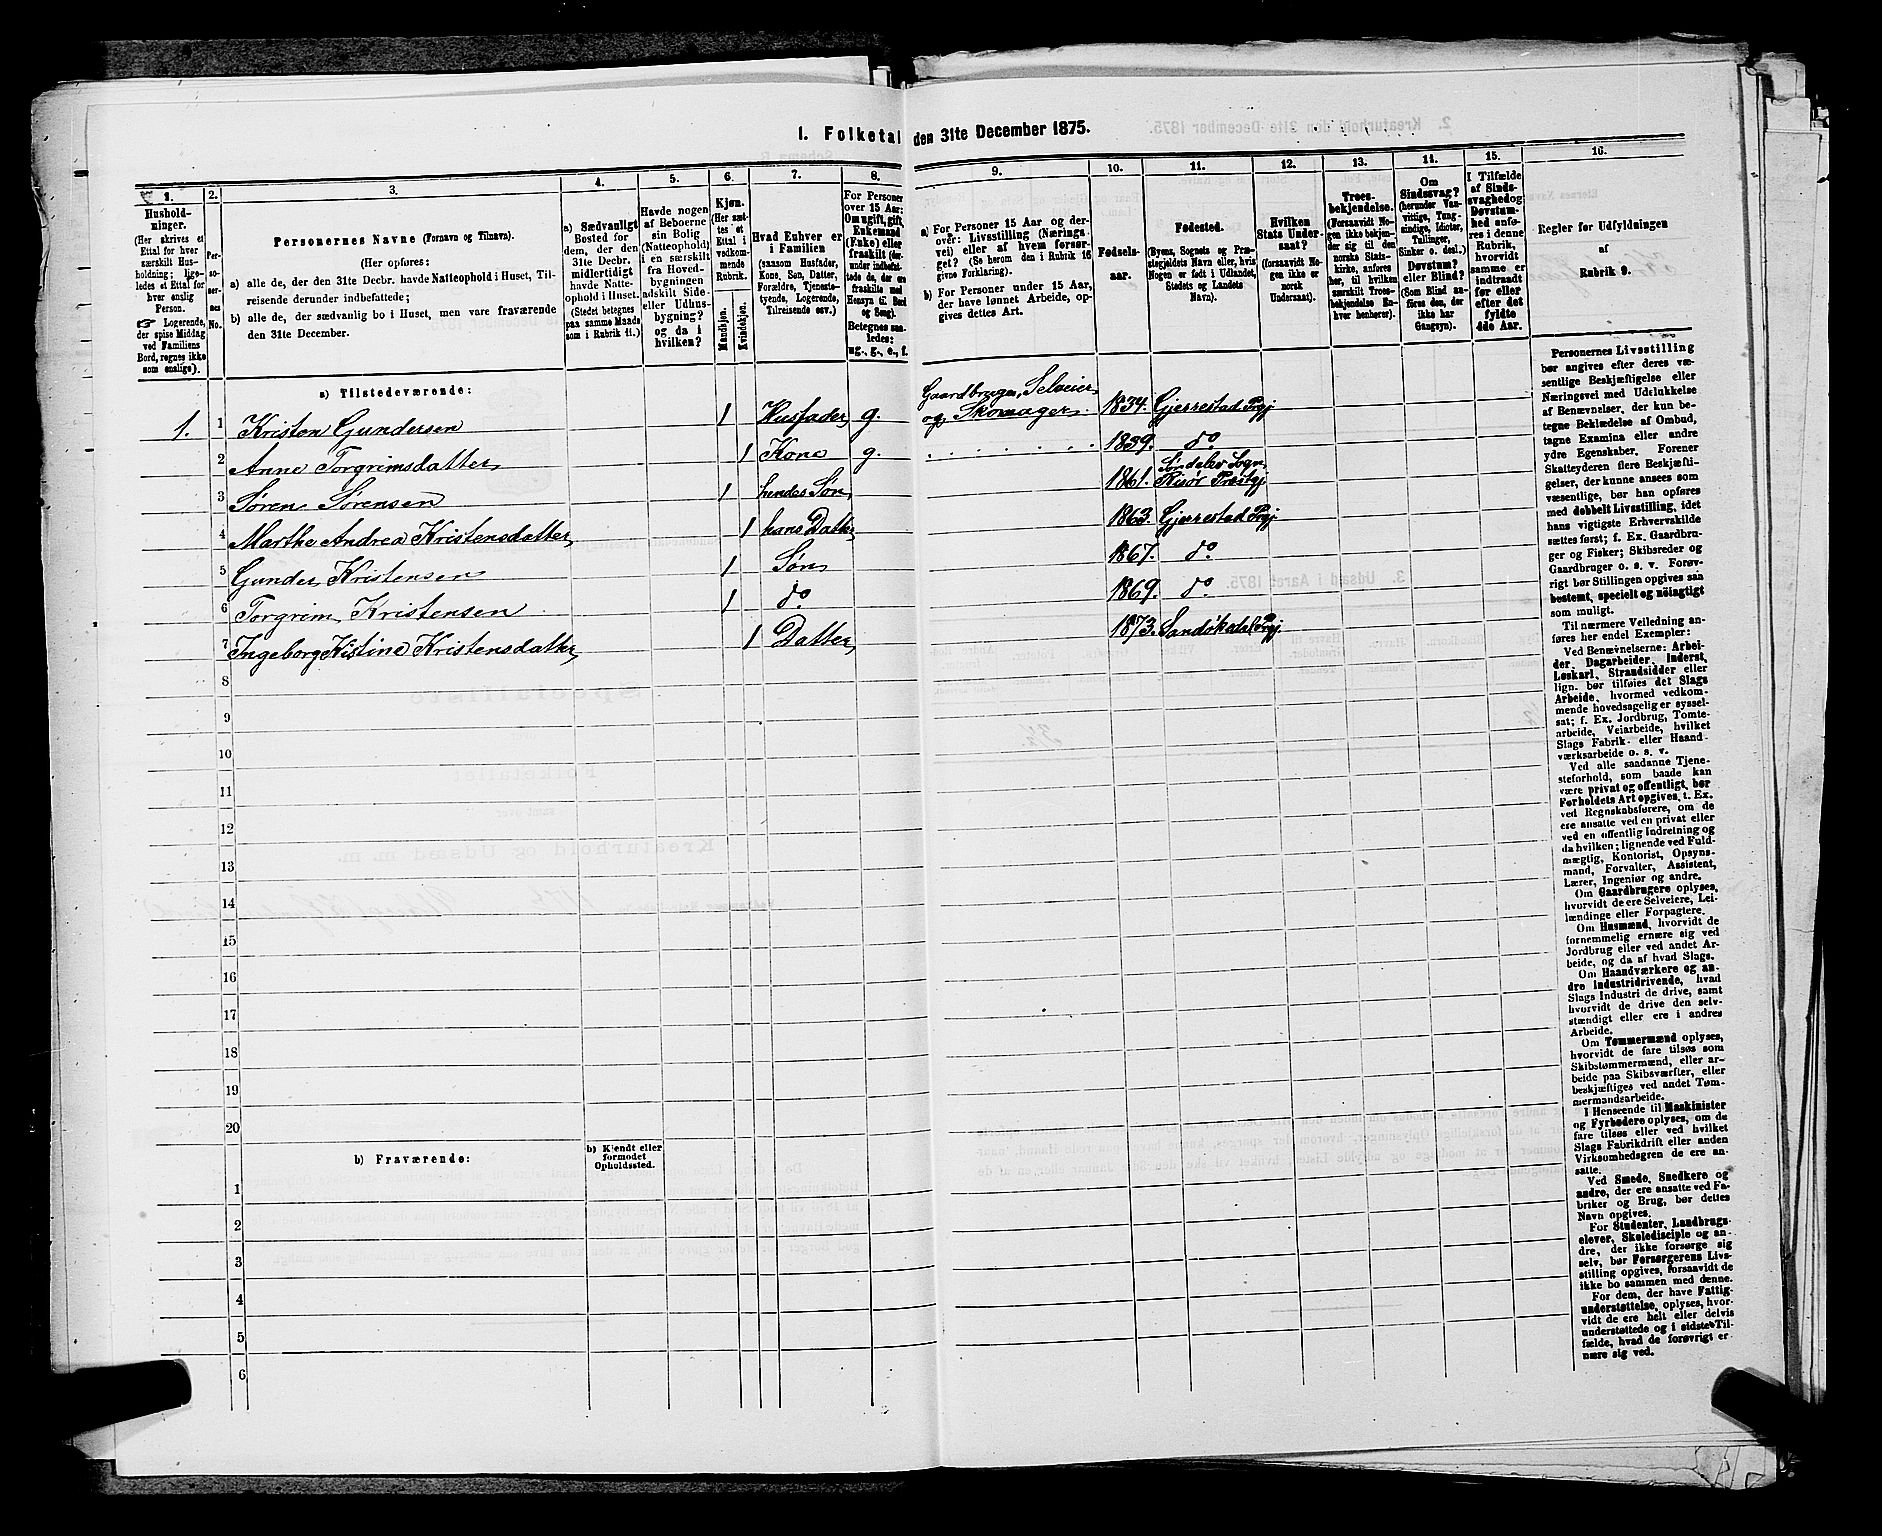 1. Folketal den 31te December 1875.
1.
Hushold-
ninger.
(Her skrives et
Ettal for hver
særskilt Hus-
holdning; lige-
ledes et Ettal for
hver enslig
Person.
☞ Logerende,
der spise Middag
ved Familiens
Bord, regnes ikke
som enslige).
2.
Per-
so-
ner-
nes
No.
3.
Personernes Navne (Fornavn og Tilnavn).
(Her opføres:
a) alle de, der den 31te Decbr. havde Natteophold i Huset, Til-
reisende derunder indbefattede;
b) alle de, der sædvanlig bo i Huset, men vare fraværende
den 31te December.
4.
a) Sædvanligt
Bosted for
dem, der den
31te Decbr.
midlertidigt
havde Natte-
ophold i Huset.
(Stedet betegnes
paa samme Maade
som i Rubrik 11.)
5.
Havde nogen
af Beboerne
sin Bolig
(Natteophold)
i en særskilt
fra Hoved-
bygningen
adskilt Side-
eller Udhus-
bygning?
og da i
hvilken?
6.
Kjøn.
(Her sæt-
tes et
Ettal i
vedkom-
mende
Rubrik.
Mandkjøn.
Kvindekjøn.
7.
Hvad Enhver er
i Familien
(saasom Husfader,
Kone, Søn, Datter,
Forældre, Tjeneste-
tyende, Logerende,
Tilreisende osv.)
8.
For Personer
over 15 Aar:
Om ugift, gift,
Enkemand
(Enke) eller
fraskilt (der-
under indbefat-
tede de, der ere
fraskilte med
Hensyn til Bord
og Seng).
Betegnes saa-
ledes:
ug., g., e., f.
9.
a) For Personer 15 Aar og der-
over: Livsstilling (Nærings-
vei) eller af hvem forsør-
get? (Se herom den i Rubrik 16
givne Forklaring).
b) For Personer under 15 Aar,
der have lønnet Arbeide, op-
gives dettes Art.
10.
Fødsels-
aar.
11.
Fødested.
(Byens, Sognets og Præ-
stegjeldets Navn eller, hvis
Nogen er født i Udlandet,
Stedets og Landets
Navn).
12.
Hvilken
Stats Under-
saat?
(forsaavidt No-
gen ikke er
norsk
Undersaat).
13.
Troes-
bekjendelse.
(Forsaavidt No-
gen ikke bekjen-
der sig til den
norske Stats-
kirke, anføres
her, til hvilken
særskilt Troes-
bekjendelse En-
hver henhører).
14.
Om
Sindssvag?
(herunder Van-
vittige, Tung-
sindige, Idioter,
Tullinger,
Sinker o. desl.)
Døvstum?
eller Blind?
(Som Blind an-
føres den, der
ikke har
Gangsyn).
15.
I Tilfælde
af Sinds-
svaghed og
Døvstum-
hed anfø-
res i denne
Rubrik,
hvorvidt
samme er
indtraadt
før eller
efter det
fyldte
4de Aar.
16.
Regler for Udfyldningen
af
Rubrik 9.
a) Tilstedeværende:
1. 1 Kristen Gundersen 1 Husfader g. Gaardbruger, Selveier
og Skomager. 1834. Gjerrestad Prgj.
2 Anne Torgrimsdatter 1 Kone g. 1839. do
3 Søren Sørensen 1 hendes Søn 1861. Søndelev Sogn,
Risør Prestgj.
4 Marthe Andrea Kristensdatter 1 hans Datter 1863. Gjerrestad Prgj.
5 Gunder Kristensen 1 Søn 1867. do
6 Torgrim Kristensen 1 do 1869. do
7 Ingeborg Kistine Kristensdatter 1 Datter 1873. Sandøkedal Prgj.
8
9
10
11
12
13
14
15
16
17
18
19
20
b) Fraværende:
b) Kjendt eller
formodet
Opholdssted.
1
2
3
4
5
6
Personernes Livsstilling
bør angives efter deres væ-
sentlige Beskjæftigelse eller
Næringsvei med Udelukkelse
af Benævnelser, der kun be-
tegne Beklædelse af Ombud,
tagne Examina eller andre
ydre Egenskaber. Forener
Skatteyderen flere Beskjæfti-
gelser, der kunne ansees som
væsentlige, bør han opføres
med dobbelt Livsstilling, idet
hans vigtigste Erhvervskilde
sættes først; f. Ex. Gaardbru-
ger og Fisker; Skibsreder og
Gaardbruger o. s. v. Forøv-
rigt bør Stillingen opgives saa
bestemt, specielt og nöiagtigt
som muligt.
Til nærmere Veiledning an-
føres her endel Exempler:
Ved Benævnelserne: Arbei-
der, Dagarbeider, Inderst,
Løskarl, Strandsidder eller
lign. bør tilføies det Slags
Arbeide, hvormed vedkom-
mende hovedsagelig er syssel-
sat; f. Ex. Jordbrug, Tomte-
arbeide, Veiarbeide, hvilket
Slags Fabrik- eller Haand-
værksarbeide o. s. v.
Ved alle saadanne Tjene-
steforhold, som baade kan
være privat og offentligt, bør
Forholdets Art opgives, t. Ex.
ved Regnskabsførere, om de
ere ansatte ved en privat eller
ved en offentlig Indretning og
da hvilken; lignende ved Fuld-
mægtig, Kontorist, Opsyns-
mand, Forvalter, Assistent,
Lærer, Ingeniør og andre.
Om Gaardbrugere oplyses,
hvorvidt de ere Selveiere, Lei-
lændinge eller Forpagtere.
Om Husmænd, hvorvidt de
fornemmelig ernære sig ved
Jordbrug eller ved andet Ar-
beide, og da af hvad Slags.
Om Haandværkere og an-
dre Industridrivende, hvad
Slags Industri de drive, samt
hvorvidt de drive den selv-
stændigt eller ere i andres
Arbeide.
Om Tømmermænd oplyses,
hvorvidt de fare tilsøs som
Skibstømmermænd, eller ar-
beide paa Skibsværfter, eller
beskjæftiges ved andet Tøm-
mermandsarbeide.
I Henseende til Maskinister
og Fyrbødere oplyses, om de
fare tilsøs eller ved hvilket
Slags Fabrikdrift eller anden
Virksomhedsgren de ere an-
satte.
Ved Smede, Snedkere og
andre, der ere ansatte ved Fa-
briker og Brug, bør dettes
Navn opgives.
For Studenter, Landbrugs-
elever, Skoledisciple og an-
dre, der ikke forsørge sig
selv, bør Forsørgerens Livs-
stilling opgives, forsaavidt de
ikke bo sammen med denne.
For dem, der have Fattig-
understøttelse, oplyses, hvor-
vidt de ere helt eller delvis
understøttede og i sidste Til-
fælde, hvad de forøvrigt er-
nære sig ved.